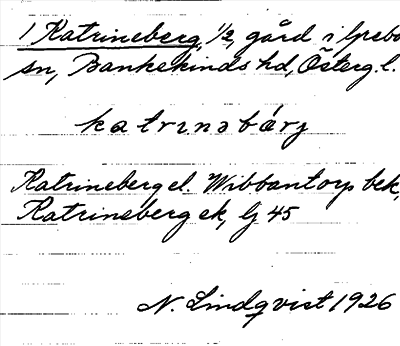 1 Katrineberg, 1/2, gård i Grebo
sn, Bankekinds hd, Österg. l.
katrinəbárj
Katrineberg el. Wibbantorp bek,
Katrineberg ek, lj 45
N. Lindqvist 1926